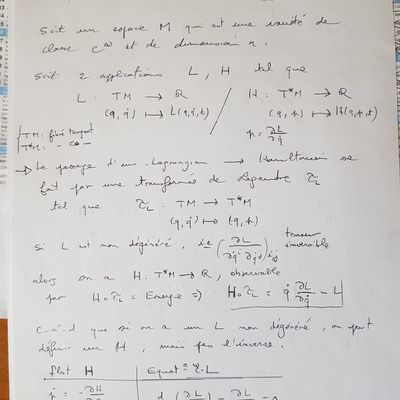 Soit un espace M qui est une variété de
classe C^ω et de dimension n.
Soit 2 applications L, H tel que
L : TM → ℝ / H : T*M → ℝ
(q, q̇) ↦ L(q, q̇, t) (q, p) ↦ H(q, p, t)
{TM : fibré tangent p = ∂L/∂q̇
T*M : - co -
→ Le passage d'un Lagrangien → Hamiltonien se
fait par une transformée de Legendre τ_L
tel que τ_L : TM → T*M
(q, q̇) ↦ (q, p)
Si L est non dégénéré, i.e (∂L/∂q̇^i ∂q̇^j)_ij tenseur inversible
alors on a H : T*M → ℝ, observable
par H ∘ τ_L = Energie => H ∘ τ_L = q̇ ∂L/∂q̇ - L
c-à-d que si on a un L non dégénéré, on peut
définir un H, mais pas l'inverse.
Flot H | Equat° E-L
ṗ = -∂H/∂q | d (∂L/ - ∂L/ =